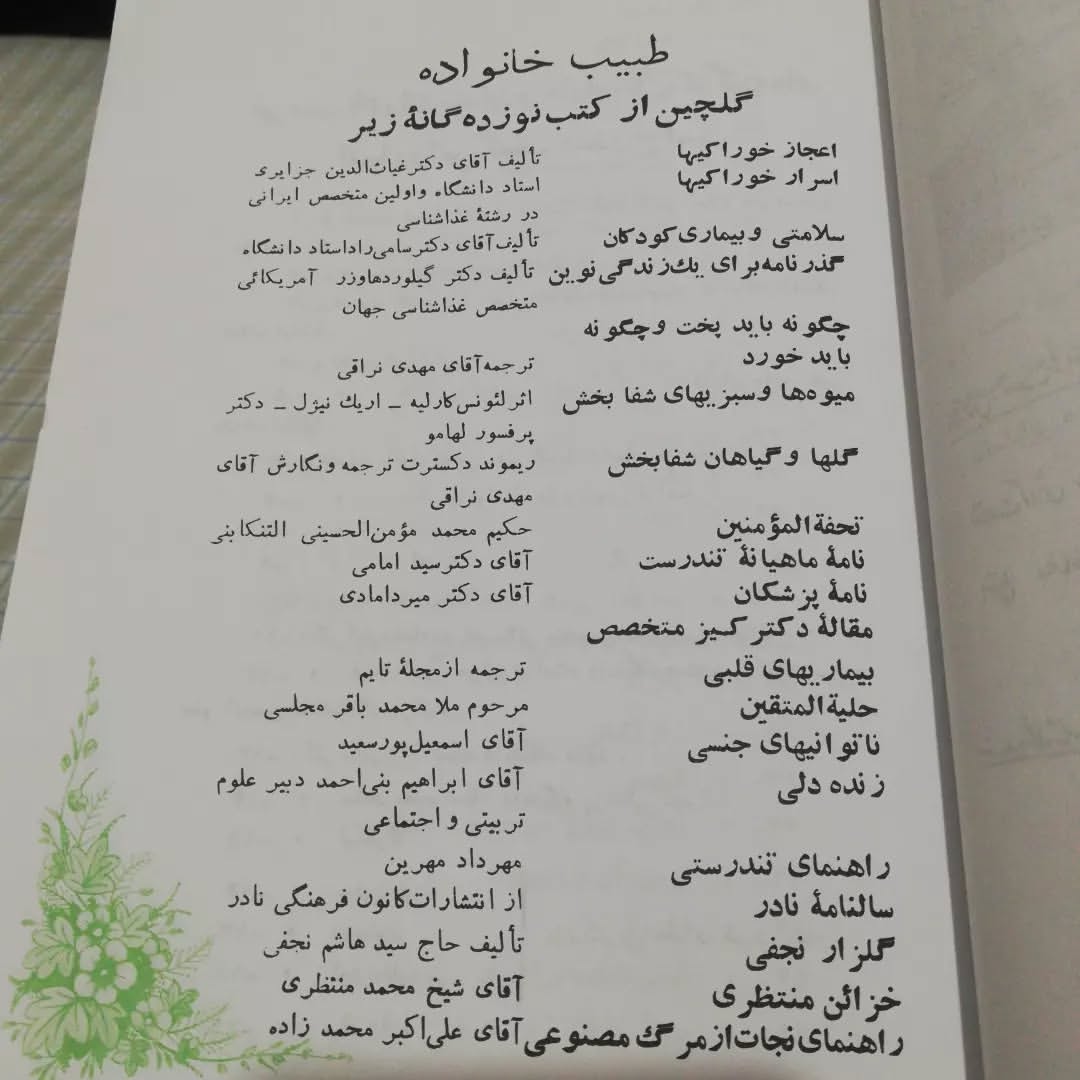 طبیب خانواده
گلچین از کتب نوزده‌گانهٔ زیر
اعجاز خوراکیها تألیف آقای دکتر غیاث‌الدین جزایری
اسرار خوراکیها استاد دانشگاه و اولین متخصص ایرانی
در رشتهٔ غذاشناسی
سلامتی و بیماری کودکان تألیف آقای دکتر سامی راد استاد دانشگاه
گذرنامه برای یک زندگی نوین تألیف دکتر گیلورد هاوزر آمریکائی
متخصص غذاشناسی جهان
چگونه باید پخت و چگونه
باید خورد ترجمه آقای مهدی نراقی
میوه‌ها و سبزیهای شفا بخش اثر لئونس کارلیه ـ اریک نیژل ـ دکتر
پرفسور لهامو
گلها و گیاهان شفابخش ریموند دکسترت ترجمه و نگارش آقای
مهدی نراقی
تحفة المؤمنین حکیم محمد مؤمن الحسینی التنکابنی
نامهٔ ماهیانهٔ تندرست آقای دکتر سید امامی
نامهٔ پزشکان آقای دکتر میردامادی
مقالهٔ دکتر کیز متخصص
بیماریهای قلبی ترجمه از مجلهٔ تایم
حلیة المتقین مرحوم ملا محمد باقر مجلسی
ناتوانیهای جنسی آقای اسمعیل پورسعید
زنده دلی آقای ابراهیم بنی‌احمد دبیر علوم
تربیتی و اجتماعی
راهنمای تندرستی مهرداد مهرین
سالنامهٔ نادر از انتشارات کانون فرهنگی نادر
گلزار نجفی تألیف حاج سید هاشم نجفی
خزائن منتظری آقای شیخ محمد منتظری
راهنمای نجات از مرگ مصنوعی آقای علی‌اکبر محمد زاده